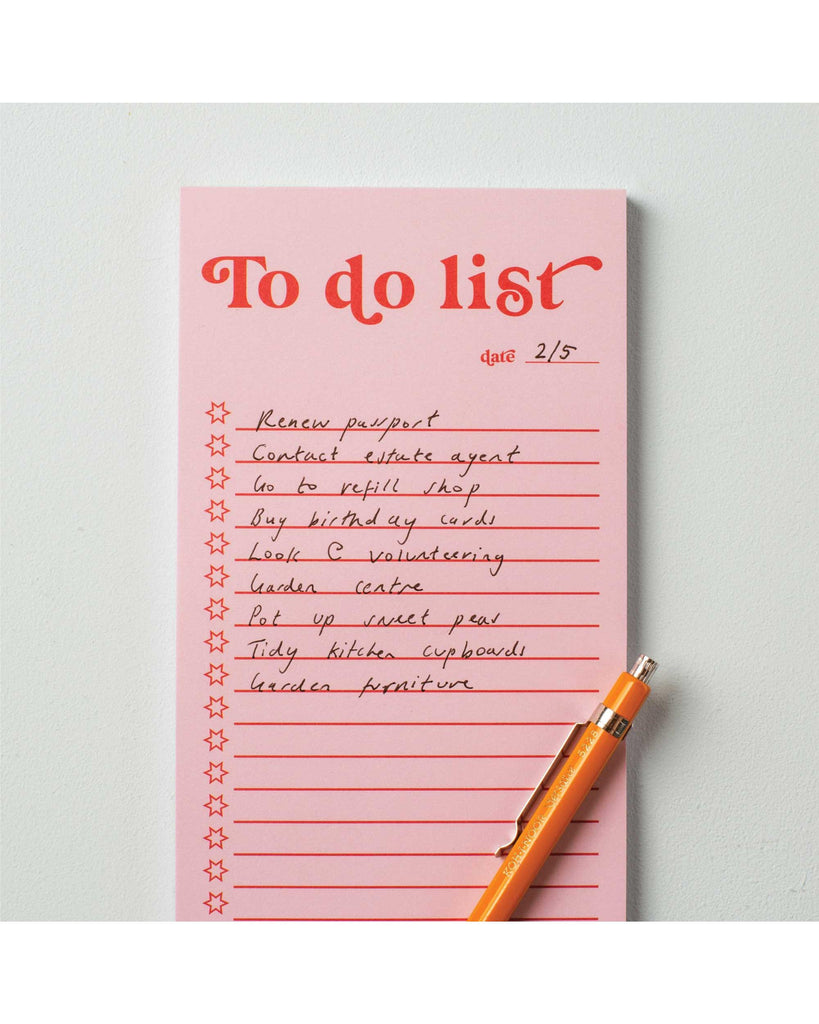 To do list
date 2/5
Renew passport
Contact estate agent
Go to refill shop
Buy birthday cards
Look @ volunteering
Garden centre
Pot up sweet peas
Tidy kitchen cupboards
Garden furniture
KOH-I-NOOR